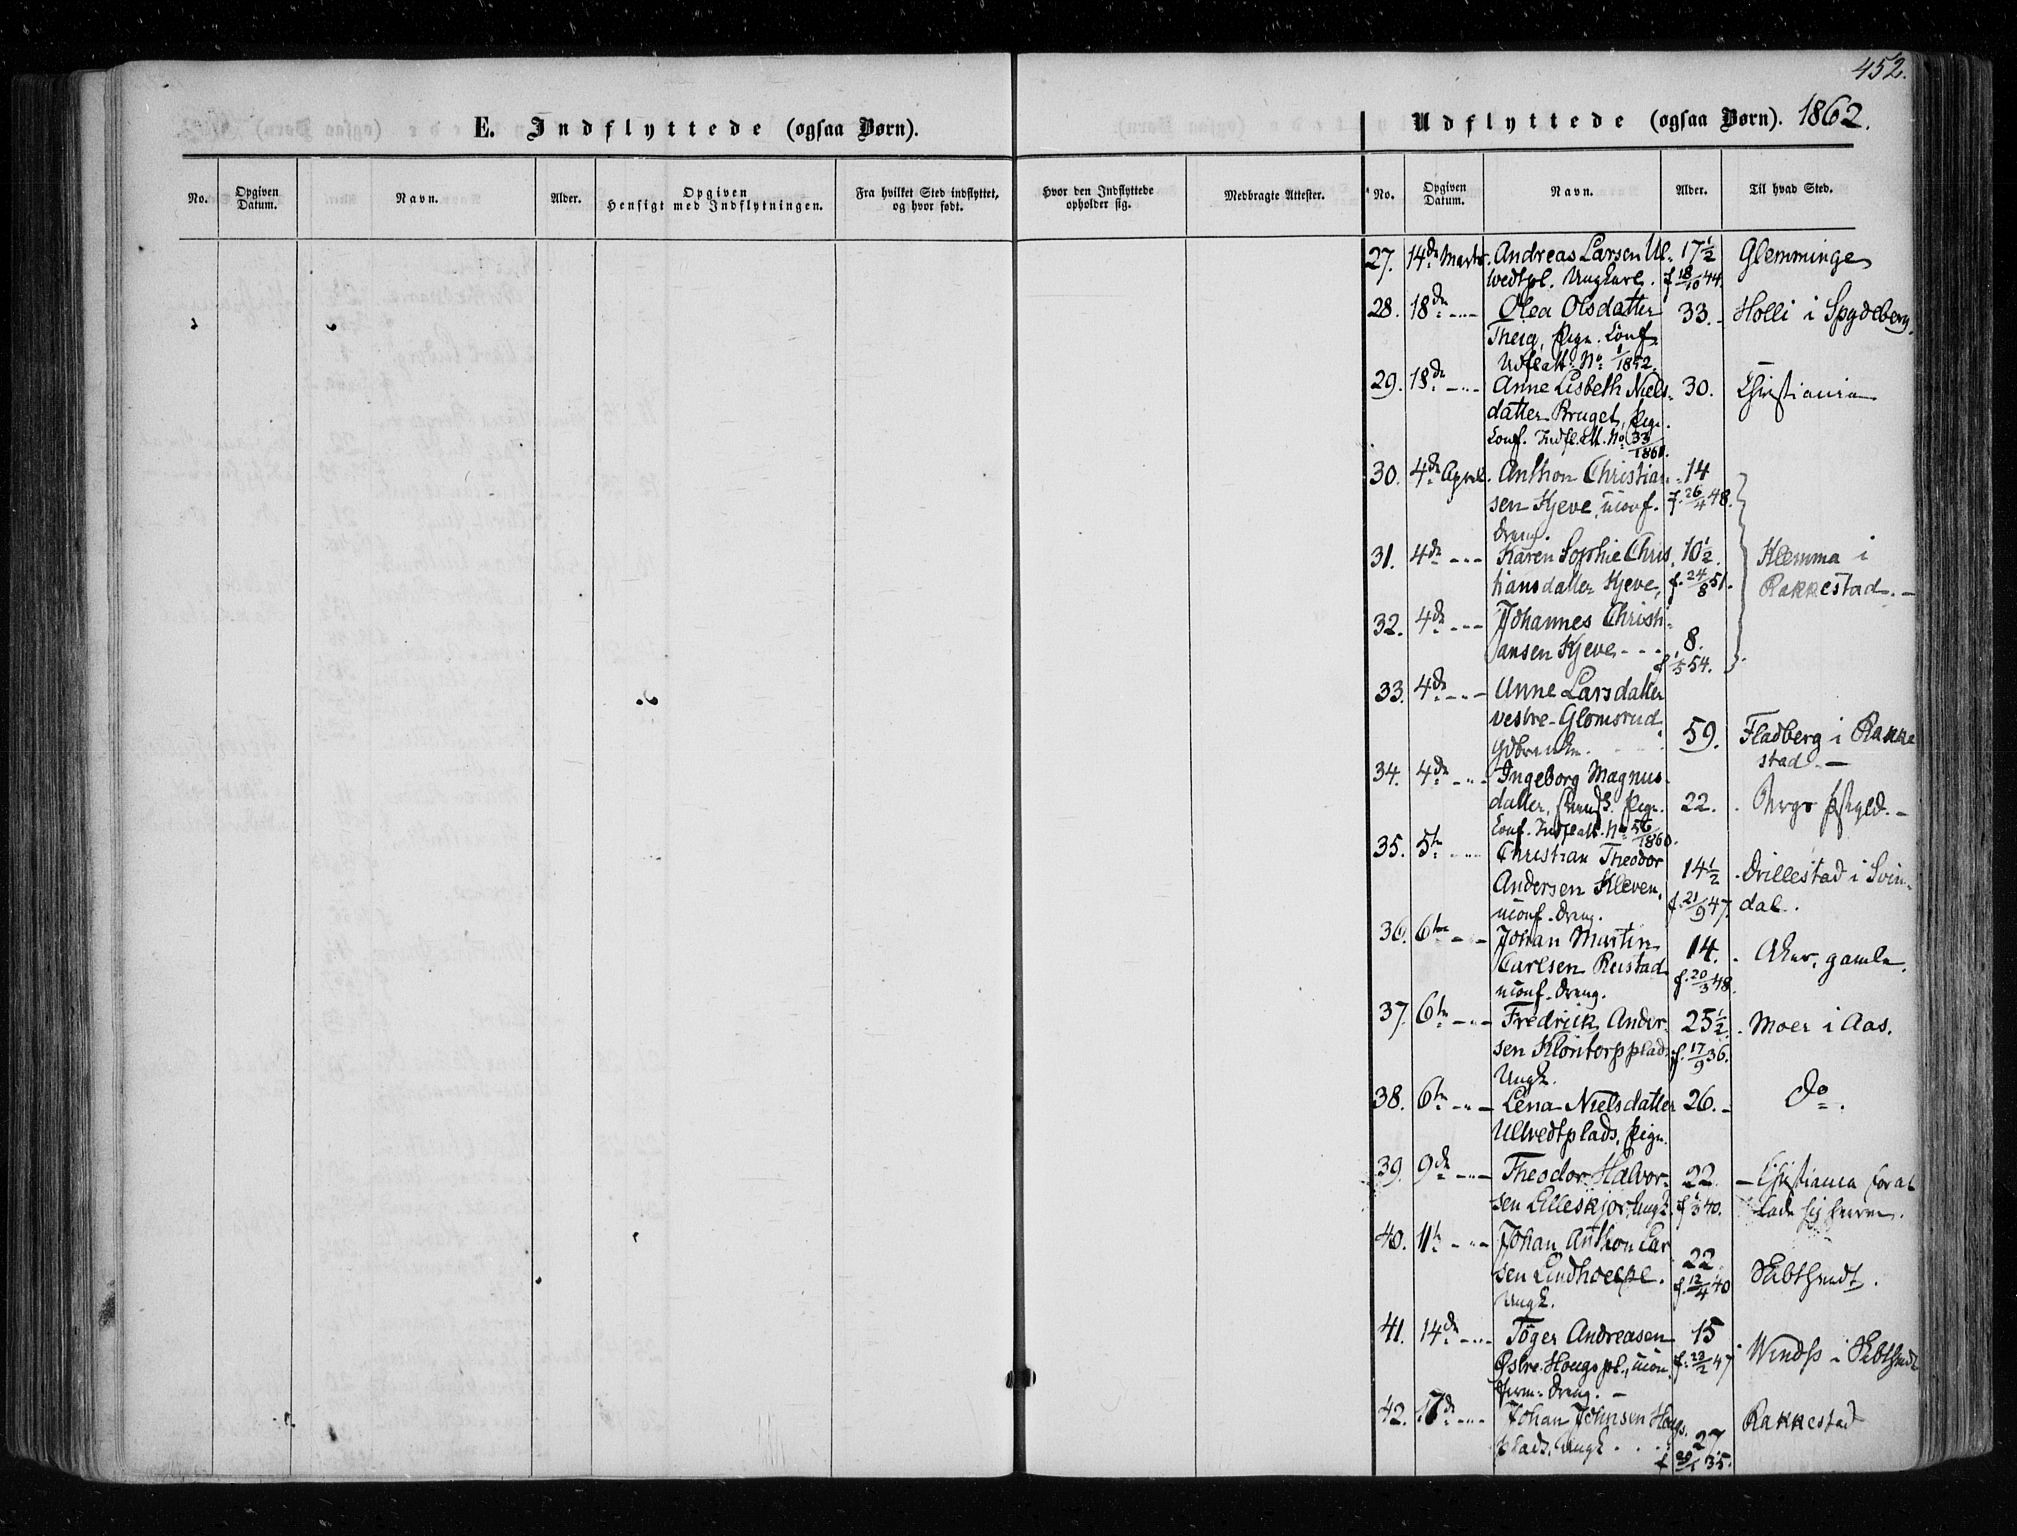 452.
E. Indflyttede (ogsaa Børn).
Udflyttede (ogsaa Børn). 1862.
No.
Opgiven Datum.
Navn.
Alder.
Opgiven Hensigt med Indflytningen.
Fra hvilket Sted indflyttet, og hvor født.
Hvor den Indflyttede opholder sig.
Medbragte Attester.
No.
Opgiven Datum.
Navn.
Alder.
Til hvad Sted.
27. 14de Marts. Andreas Larsen Ul- 17½ Glemminge
vedtpl. Ungkarl. f. 18/10 44.
28. 18de -„- Olea Olsdatter 33. Holli i Spydeberg.
Theig, Pige. Conf.
Udfl att: No 1/1852.
29. 18de -„- Anne Lisbeth Niels- 30. Christiania
datter Bruget, Pige.
Conf. Indfl. Att. No 33/1861.
30. 4de April. Anthon Christian- 14
sen Kjeve, uconf. f. 26/4 48.
Dreng.
31. 4de -„- Karen Sophie Chris 10½ Klemma i
tiansdatter Kjeve, f. 24/8 51. Rakkestad. -
32. 4de -„- Johannes Christi-
ansen Kjeve - - 8.
f. 1/5 54.
33. 4de -„- Anne Larsdatter
vestre-Glomsrud 59. Fladberg i Rakke
stad. -
34. 4de -„- Ingeborg Magnus-
datter, Pige. 22.
Conf. Indfl att. No 56/1860.
35. 5te -„- Christian Theodor
Andersen Kleven, 14½ Drillestad i Svin-
uconf. Dreng. f. 21/9 47. dal.
36. 6te -„- Johan Martin
Carlsen Rustad 14. Aker, gamle.
uconf. Dreng. f. 20/3 48.
37. 6te -„- Fredrick Ander- 25½ Moer i Aas.
sen Klontorpplads f. 17/9 36.
Ungk.
38. 6te -„- Lena Nielsdatter 26. - Do.
Ulvedtplads, Pige.
39. 9de -„- Theodor Halvor- 22 - Christiania for at
sen Lilleskjor, Ungk. f. 1/3 40. lade sig
40. 11te -„- Johan Anthon Lar
sen Lindhoel 22
Ungk. f. 12/4 40
41. 14de -„- Töger Andreasen 15
Østre-Hougs pl., ucon f. 23/2 47
firm. Dreng. -
42. 17de -„- Johan Johnsen Hougs- Rakkestad
plads, Ungk. . . . 27
f 20/1 35.